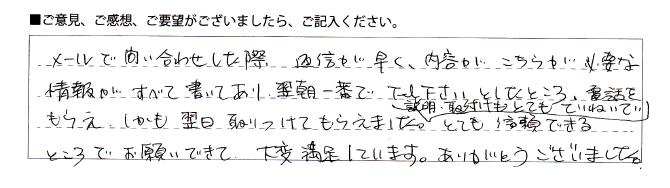 ■ご意見、ご感想、ご要望がございましたら、ご記入ください。
メールで問い合わせした際 返信が早く、内容が こちらが必要な
情報が すべて書いてあり 翌朝一番で TEL下さい としたところ、電話を
説明・取付けもとてもていねいで
もらえ しかも翌日 取りつけてもらえました。とても信頼できる
ところで お願いできて 大変満足しています。ありがとうございました。